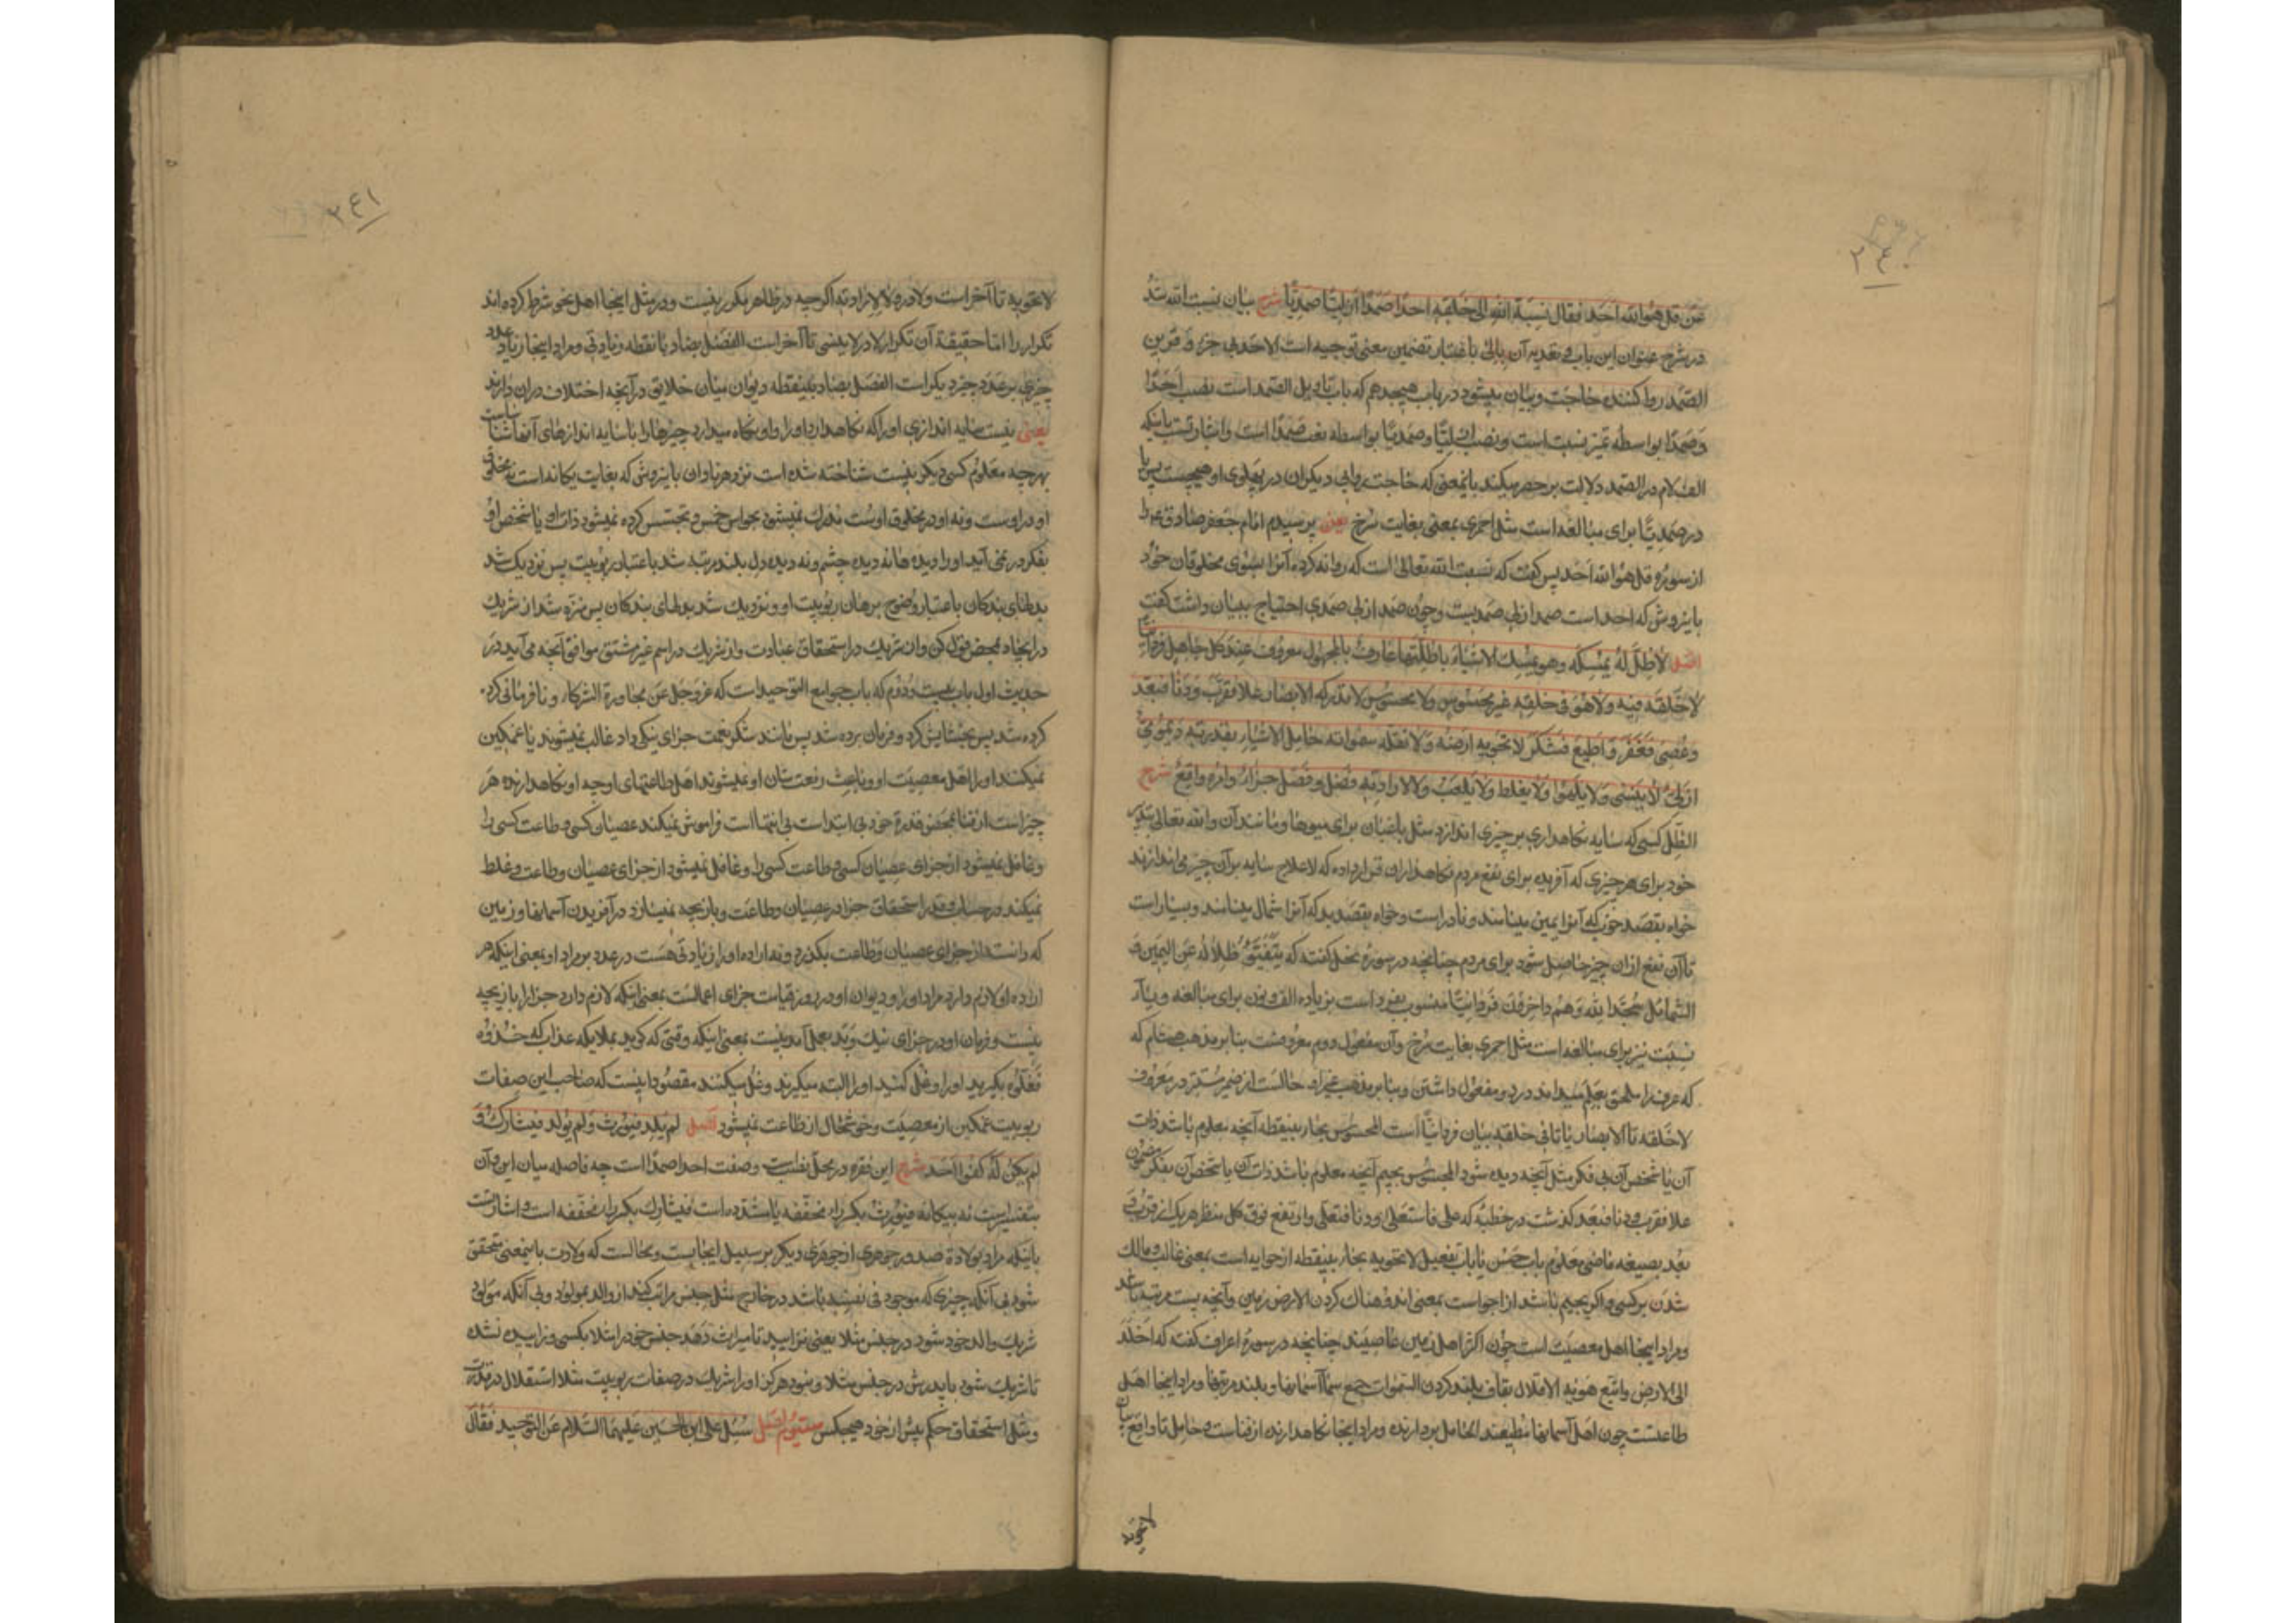 ۲۴۰
عَن قل هُوَ الله اَحَد فقال نسبة الله الى خلقه احدا صمدا ازليّا صمديّا شرح بيان نسبت الله شد
در شرح عنوان اين باب و تعديه آن بالى باعتبار تضمين معنى توجيه است الاحد بى جزء و قرين
الصّمد روا كننده حاجت و بيان ميشود در باب هيجدهم كه باب تاويل الصّمد است نصب احدًا
و صمدًا بواسطه تميز نسبت است و نصب ازليّا و صمديّا بواسطه نعت صمدًا است و اشارتست باينكه
الف لام در الصّمد دلالت بر حصر ميكند باينمعنى كه حاجت روايى ديكران در پهلوى او هيچست پس يا
در صمديّا براى مبالغه است مثل احمرى بمعنى بغايت سرخ يعنى پرسيدم امام جعفر صادق ع را
از سوره قل هو الله احد پس كفت كه نسبت الله تعالى است كه روانه كرده آنرا بسوى مخلوقان خود
باين روش كه احد است صمد ازلى صمديست و چون صمد ازلى صمدى احتياج ببيان داشت كفت
اصل لا ظلّ له يمسكه و هو يمسك الاشياء باظلّتها عارف بالمجهول معروف عند كل جاهل فردانيّا
لا خلقه فيه و لا هو فى خلقه غير محسوس و لا مجسوس لا تدركه الابصار علا فقرب و دنا فبعد
و عُصى فغفر و اطيع فشكر لا تحويه ارضه و لا تقلّه سمواته حامل الاشياء بقدرته ديمومىّ
ازلىّ لا ينسى و لا يلهو و لا يغلط و لا يلعب و لا لارادته فصل و فصله جزاء و امره واقع شرح
الظّل كسى كه سايه نكاهدارى بر چيزى اندازد مثل باغبان براى ميوها و مانند آن و الله تعالى بتدبير
خود براى هر چيزى كه آفريده براى نفع مردم نكاهداران قرار داده كه لاعلاج سايه بر آن چيز مى اندازند
خواه بقصد خوب كه آنرا يمين مينامند و نادر است و خواه بقصد بد كه آنرا شمال مينامند و بسيار است
تا آن نفع ازان چيز حاصل شود براى مردم چنانچه در سورۀ نحل كفته كه يتفيّؤ ظلاله عن اليمين و
الشمائل سجّدا لله و هم داخرون فردانيّا منسوب بفرد است بزياده الف و نون براى مبالغه و ياء
نسبت نيز براى مبالغه است مثل احمرى بغايت سرخ و آن مفعول دوم معروفست بنابر مذهب هشام كه
كه عرف را ملحق بعلم ميداند در دو مفعول داشتن و بنابر مذهب غير او حالست از ضمير مستتر در معروف
لا خلقه تا الابصار يا تا فى خلقه بيان فردانيّا است المحسوس بحاء بينقطه آنچه معلوم باشد ذات
آن يا شخص آن بى فكر مثل آنچه ديده شود المجسوس بجيم آنچه معلوم باشد ذات آن يا شخص آن بفكر
علا فقرب و دنا فبعد كذشت در خطبه كه على فاستعلى و دنا فتعلى و ارتفع فوق كل منظر هريك از قرب و
بعد بصيغه ماضى معلوم باب حسن يا باب تفعيل لا تحويه بحاء بينقطه از حوايه است بمعنى غالب و مالك
شدن بر كسى و اكر بجيم باشد از اجواست بمعنى اندوهناك كردن الارض زمين و آنچه پست مرتبه باشد
و مراد اينجا اهل معصيت است چون اكثر اهل زمين عاصيند چنانچه در سورۀ اعراف كفته كه اخلد
الى الارض و اتبع هويه الاقلال بقاف بلند كردن السّموات جمع سما آسمانها و بلند مرتبها و مراد اينجا اهل
طاعتست چون اهل آسمانها مطيعند الحامل بردارنده و مراد اينجا نكاهدارنده از فناست و حامل تا واقع بيان
لا تحويه
۲۴۱
لا تحويه تا آخر است و لا در و لا لارادته اكرچه در ظاهر مكرر نيست و در مثل اينجا اهل نحو شرط كرده اند
تكرار را امّا حقيقة آن تكرار لا در لا ينسى تا آخر است الفضل بضاد با نقطه زيادتى و مراد اينجا زياد عدد
چيزى بر عدد چيز ديكر است الفصل بصاد بينقطه ديوان ميان خلايق در آنچه اختلاف دران دارند
يعنى نيست سايه اندازى او را كه نكاهدارد او را و او نكاه ميدارد چيزها را با سايه اندازهاى آنها شناساست
بهرچه معلوم كسى ديكر نيست شناخته شده است نزد هر نادان باين روش كه بغايت يكانه است نه مخلوق
او در اوست و نه او در مخلوق اوست مدرك نميشود بحواس خمس و تجسّس كرده نميشود ذات او يا شخص او
بفكر در نمى آيد او را ديده ها نه ديده چشم و نه ديده دل بلند مرتبه شد باعتبار ربوبيت پس نزديك شد
بدلهاى بندكان باعتبار وضوح برهان ربوبيت او و نزديك شد بدلهاى بندكان پس منزه شد از شريك
در ايجاد بمحض قول كن و از شريك در استحقاق عبادت و از شريك در اسم غير مشتق موافق آنچه مى آيد در
حديث اول باب بيست و دوم كه باب جوامع التوحيد است كه عزّ و جل عن مجاورة الشركاء و نافرمانى كرد
كرده شد پس بخشايش كرد و فرمان برده شد پس مانند شكر نعمت جزاى نيكى داد غالب نميشوند يا غمكين
نميكنند او را اهل معصيت او و باعث رفعت شان او نميشوند اهل طاعتهاى او چه او نكاهدارنده هر
چيز است از فنا بمحض قدرة خود بى ابتداست بى انتهااست فراموش نميكند عصيان كسى و طاعت كسى را
و غافل نميشود از جزاى عصيان كسى و طاعت كسى را و غافل نميشود از جزاى عصيان و طاعت و غلط
نميكند در حساب و قدر استحقاق جزا در عصيان و طاعت و بازيچه نميسازد در آفريدن آسمانها و زمين
كه دانسته از جزاى عصيان و طاعت بكذرد و نه اراده او را زيادتى هست در عدد بر مراد او بمعنى اينكه هر
اراده او لازم دارد مراد او را و ديوان او در روز قيامت جزاى اعمالست بمعنى اينكه لازم دارد جزا را بازيچه
نيست و فرمان او در جزاى نيك و بد بعمل آمدنيست بمعنى اينكه وقتى كه كويد بملايكه عذاب كه خذوه
فغلّوه بكيريد او را و غل كنيد او را البته ميكيرند و غل ميكنند مقصود اينست كه صاحب اين صفات
ربوبيت غمكين از معصيت و خوشحال از طاعت نميشود اصل لم يلد فيورث و لم يولد فيشارك و
لم يكن له كفوا احد شرح اين فقره در محلّ نصبست و صفت احدا صمدا است چه فاصله ميان اين و آن
بتفسير است نه بيكانه فيورث بكسر راء مخففه يا مشدده است فيشارك بكسر راء مخففه است و اشارتست
باينكه مراد بولادة صدور جوهرى از جوهرى ديكر بر سبيل ايجابست و محالست كه ولادت باينمعنى متحقق
شود بى آنكه چيزى كه موجود فى نفسه باشد در خارج مثل جنس سرايت كند از والد بمولود و بى آنكه مولود
شريك والد خود شود در جنس مثلا يعنى نزاييد تا ميراث دهد جنس خود را مثلا بكسى و زاييده نشده
تا شريك شود با پدرش در جنس مثلا و نبود هركز او را شريك در صفات ربوبيت مثلا استقلال در قدرت
و مثل استحقاق حكم پيش از خود هيچكس سيّوم اصل سئل على ابن الحسين عليهما السّلام عن التوحيد فقال